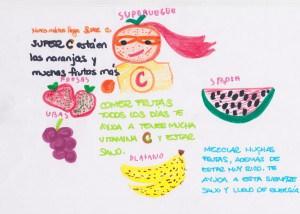 SUPERHEROE
SUPER C está en
las naranjas y
muchas frutas más
FRESAS
UBAS
C
SANDIA
COMER FRUTAS
TODOS LOS DÍAS TE
AYUDA A TENER MUCHA
VITAMINA C Y ESTAR
SANO.
PLATANO
MEZCLAR MUCHAS
FRUTAS, ADEMÁS DE
ESTAR MUY RICO, TE
AYUDA A ESTA SIEMPRE
SANO Y LLENO DE ENERGÍA